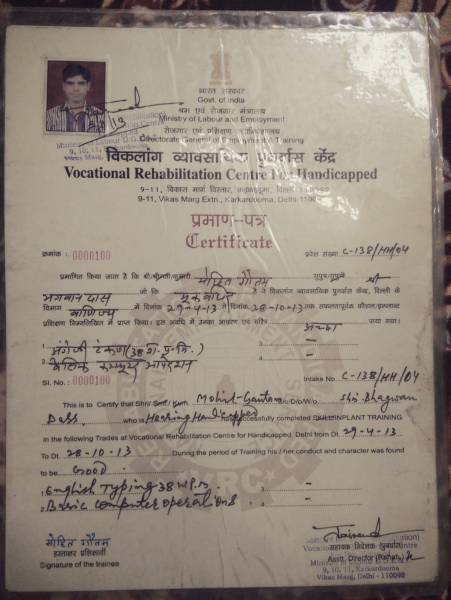 भारत सरकार
Govt. of India
श्रम एवं रोजगार मंत्रालय
Ministry of Labour and Employment
रोजगार एवं प्रशिक्षण महानिदेशालय
Directorate General of Employment & Training
विकलांग व्यावसायिक पुनर्वास केंद्र
Vocational Rehabilitation Centre For Handicapped
9-11, विकास मार्ग विस्तार, कड़कड़डूमा, दिल्ली
9-11, Vikas Marg Extn., Karkardooma, Delhi
प्रमाण-पत्र
Certificate
क्रमांक : 0000100
प्रवेश संख्या C-138/HH/04
प्रमाणित किया जाता है कि श्री/श्रीमती/कुमारी मोहित गौतम सुपुत्र/सुपुत्री श्री
भगवान दास जो कि मूक बधिर है ने विकलांग व्यावसायिक पुनर्वास केंद्र, दिल्ली के
विभाग वाणिज्य में दिनांक 29-4-13 से दिनांक 28-10-13 तक सफलतापूर्वक कौशल/इम्प्लान्ट
प्रशिक्षण निम्नलिखित में प्राप्त किया। इस अवधि में उनका आचरण एवं चरित्र अच्छा पाया गया।
1. अंग्रेजी टंकण (38 श. प्र. मि.) 3. –
2. बेसिक कम्प्यूटर आपरेशन –
Sl. No. : 0000100
Intake No. C-138/HH/04
This is to Certify that Shri/ Smt./ Kum. Mohit Gautam S/o/D/o/W/o. Shri Bhagwan
Dass who is Hearing Handicapped has successfully completed SKILL/INPLANT TRAINING
in the following Trades at Vocational Rehabilitation Centre for Handicapped, Delhi from Dt. 29-4-13
To Dt. 28-10-13 During the period of Training his / her conduct and character was found
to be Good
1. English Typing 38 w.p.m 3. –
2. Basic Computer Operations 4. –
मोहित गौतम
हस्ताक्षर प्रशिक्षार्थी
Signature of the trainee
सहायक निदेशक (पुनर्वास)
Asstt. Director (Rehab.)
9, 10, 11, Karkardooma
Vikas Marg, Delhi - 110092